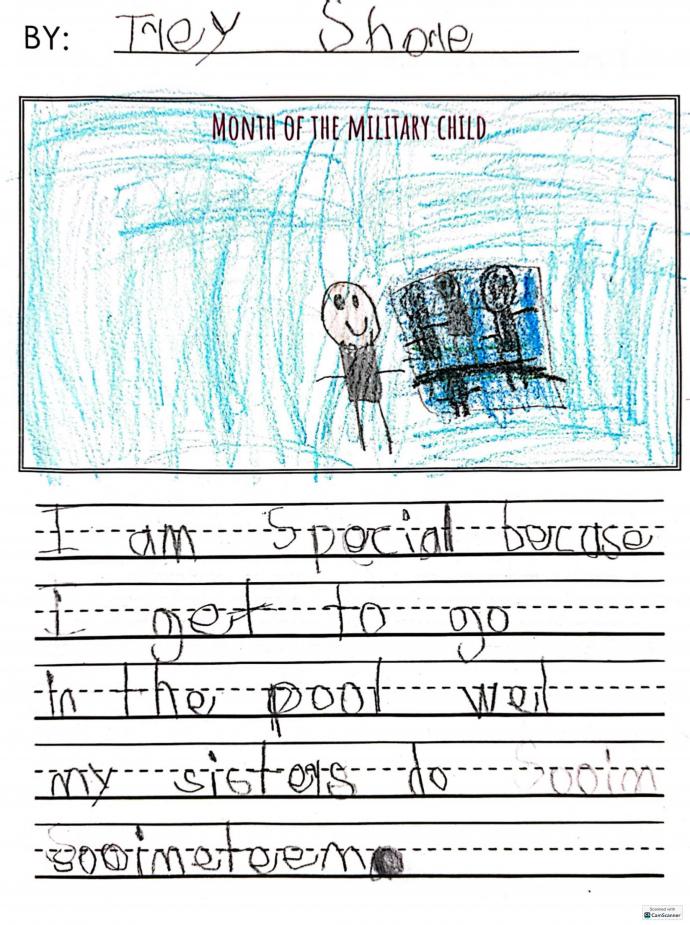 BY: Trey Shore
MONTH OF THE MILITARY CHILD
I am Special becase
I get to go
In the pool weil
my sisters do Sooim
Sooimeteem.
Scanned with
CamScanner